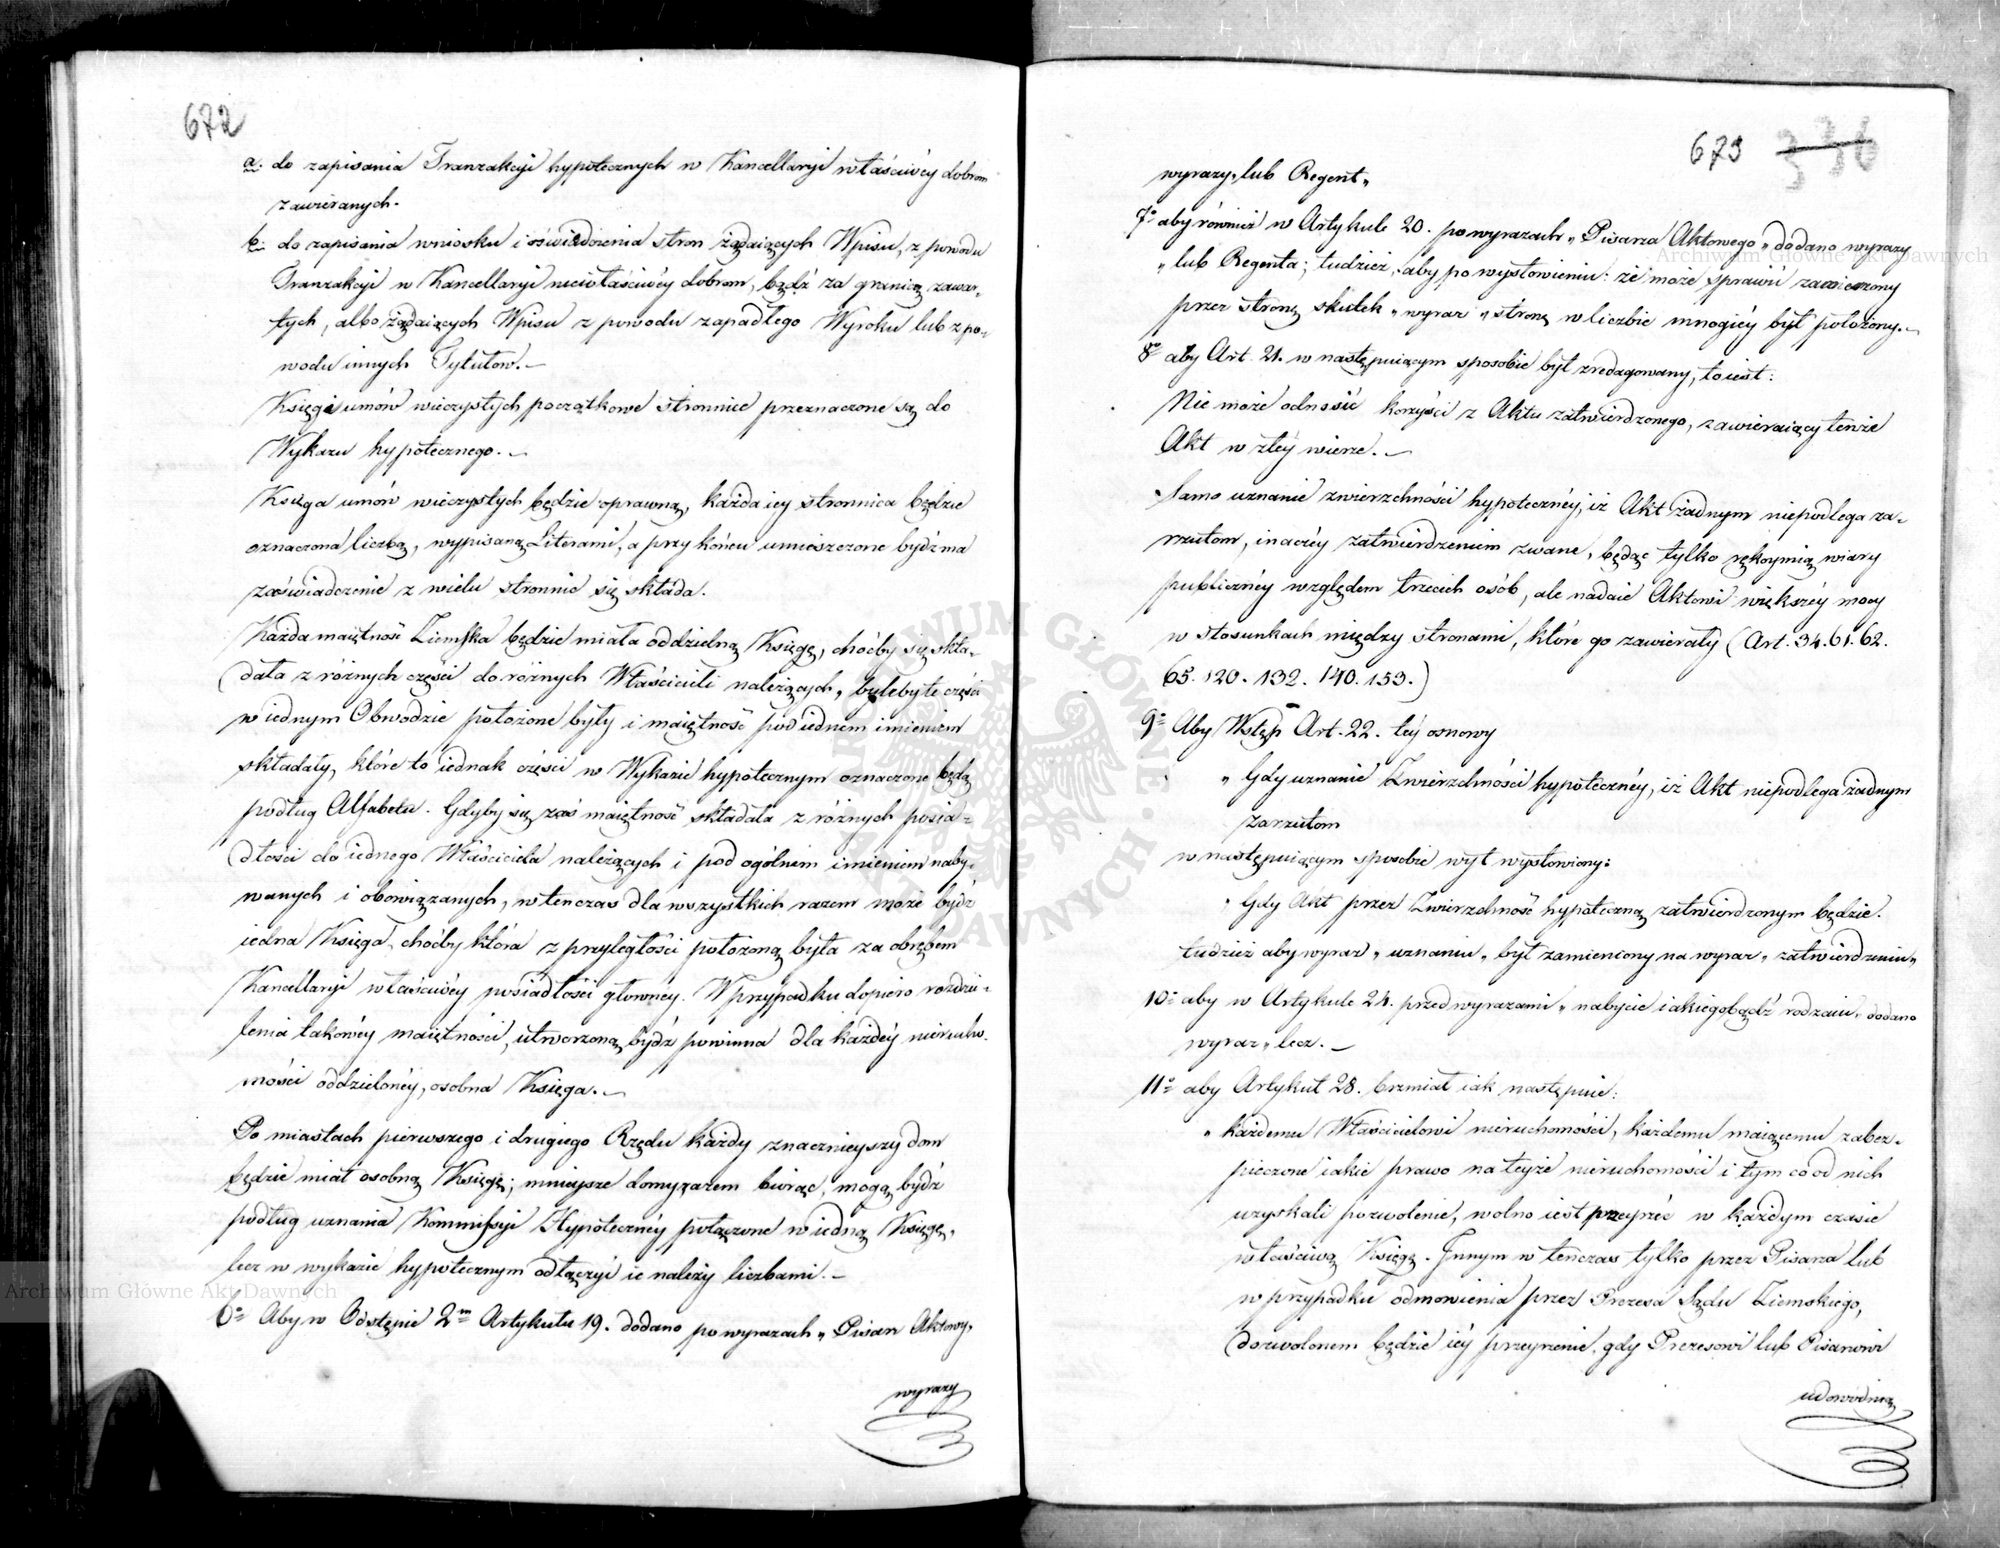 672
a. do zapisania Tranzakcji hypotecznych w Kancellaryi właściwéy dobrom
zawieranych.
b. do zapisania wniosku i oświadczenia stron żądaiących Wpisu, z powodu
Tranzakcji w Kancellaryi niewłaściwéy dobrom, bądź za granicą zawar-
tych, albo żądaiących Wpisu z powodu zapadłego Wyroku lub z po-
wodu innych Tytułów.—
Księgi umów wieczystych początkowe stronnice przeznaczone są do
Wykazu hypotecznego.—
Księga umów wieczystych będzie oprawną, każda iey stronnica będzie
oznaczona liczbą, wypisaną Literami, a przy końcu umieszczone bydź ma
zaświadczenie z wielu stronnic się składa.
Każda maiętność Ziemska będzie miała oddzielną Księgę, choćby się skła-
dała z różnych części do różnych Właścicieli należących, byleby te części
w iednym Obwodzie położone były i maiętność pod iednem imieniem
składały, które to iednak części w Wykazie hypotecznym oznaczone będą
podług Alfabetu. Gdyby się zaś maiętność składała z różnych posia-
dłości do iednego Właściciela należących i pod ogólnem imieniem naby-
wanych i obowiązanych, wtenczas dla wszystkich razem może bydź
iedna Księga, choćby która z przyległości położoną była za obrębem
Kancellaryi właściwéy posiadłości głownéy. W przypadku dopiero rozdzie-
lenia takowéy maiętności, utworzoną bydź powinna dla każdéy nierucho-
mości oddzielonéy, osobna Księga.—
Po miastach pierwszego i drugiego Rzędu każdy znacznieyszy dom
będzie miał osobną Księgę; mnieysze domy razem biorąc, mogą bydź
podług uznania Kommissyi Hypotecznéy połączone w iedną Księgę,
lecz w wykazie hypotecznym odłączyć ie należy liczbami.—
6o Aby w Odstępie 2m Artykułu 19. dodano po wyrazach „Pisarz Aktowy„
wyrazy
673 336
wyrazy „lub Regent„
7o aby również w Artykule 20. po wyrazach „Pisarza Aktowego„ dodano wyrazy
„lub Regenta; tudzież, aby po wysłowieniu: że może sprawić zamierzony
przez stronę skutek „wyraz„ stronę w liczbie mnogiéy był położony.—
8o aby Art. 21. w następuiącym sposobie był zredagowany, to iest:
Nie może odnosić korzyści z Aktu zatwierdzonego, zawieraiący tenże
Akt w złéy wierze.—
Samo uznanie zwierzchności hypotecznéy, iż Akt żadnym niepodlega za-
rzutom, inaczéy zatwierdzeniem zwane, będąc tylko rękoymią wiary
publicznéy względem trzecich osób, nadaie Aktowi większéy mocy
w stosunkach między stronami, które go zawierały (Art. 34. 61. 62.
65. 120. 132. 140. 153.)
9o Aby Wstęp Art. 22. téy osnowy
„Gdy uznanie Zwierzchności hypotecznéy, iż Akt niepodlega żadnym
zarzutom
w następuiącym sposobie był wysłowiony:
„Gdy Akt przez Zwierzchność hypoteczną zatwierdzonym będzie.
tudzież aby wyraz „uznaniu„ był zamieniony na wyraz „zatwierdzeniu„
10o aby w Artykule 24. przed wyrazami „nabycie iakiegobądź rodzaiu„ dodano
wyraz „lecz.—
11o aby Artykuł 28. brzmiał iak następuie:
„każdemu Właścicielowi nieruchomości, każdemu maiącemu zabez-
pieczone iakie prawo na teyże nieruchomości i tym co od nich
uzyskali pozwolenie, wolno iest przeyrzéć w każdym czasie
właściwą Księgę. Innym wtenczas tylko przez Pisarza lub
w przypadku odmowienia przez Prezesa Sądu Ziemskiego,
dozwolonem będzie iéy przeyrzenie, gdy Prezesowi lub Pisarzowi
udowodnią
Archiwum Główne Akt Dawnych
Archiwum Główne Akt Dawnych
ARCHIWUM GŁÓWNE AKT DAWNYCH